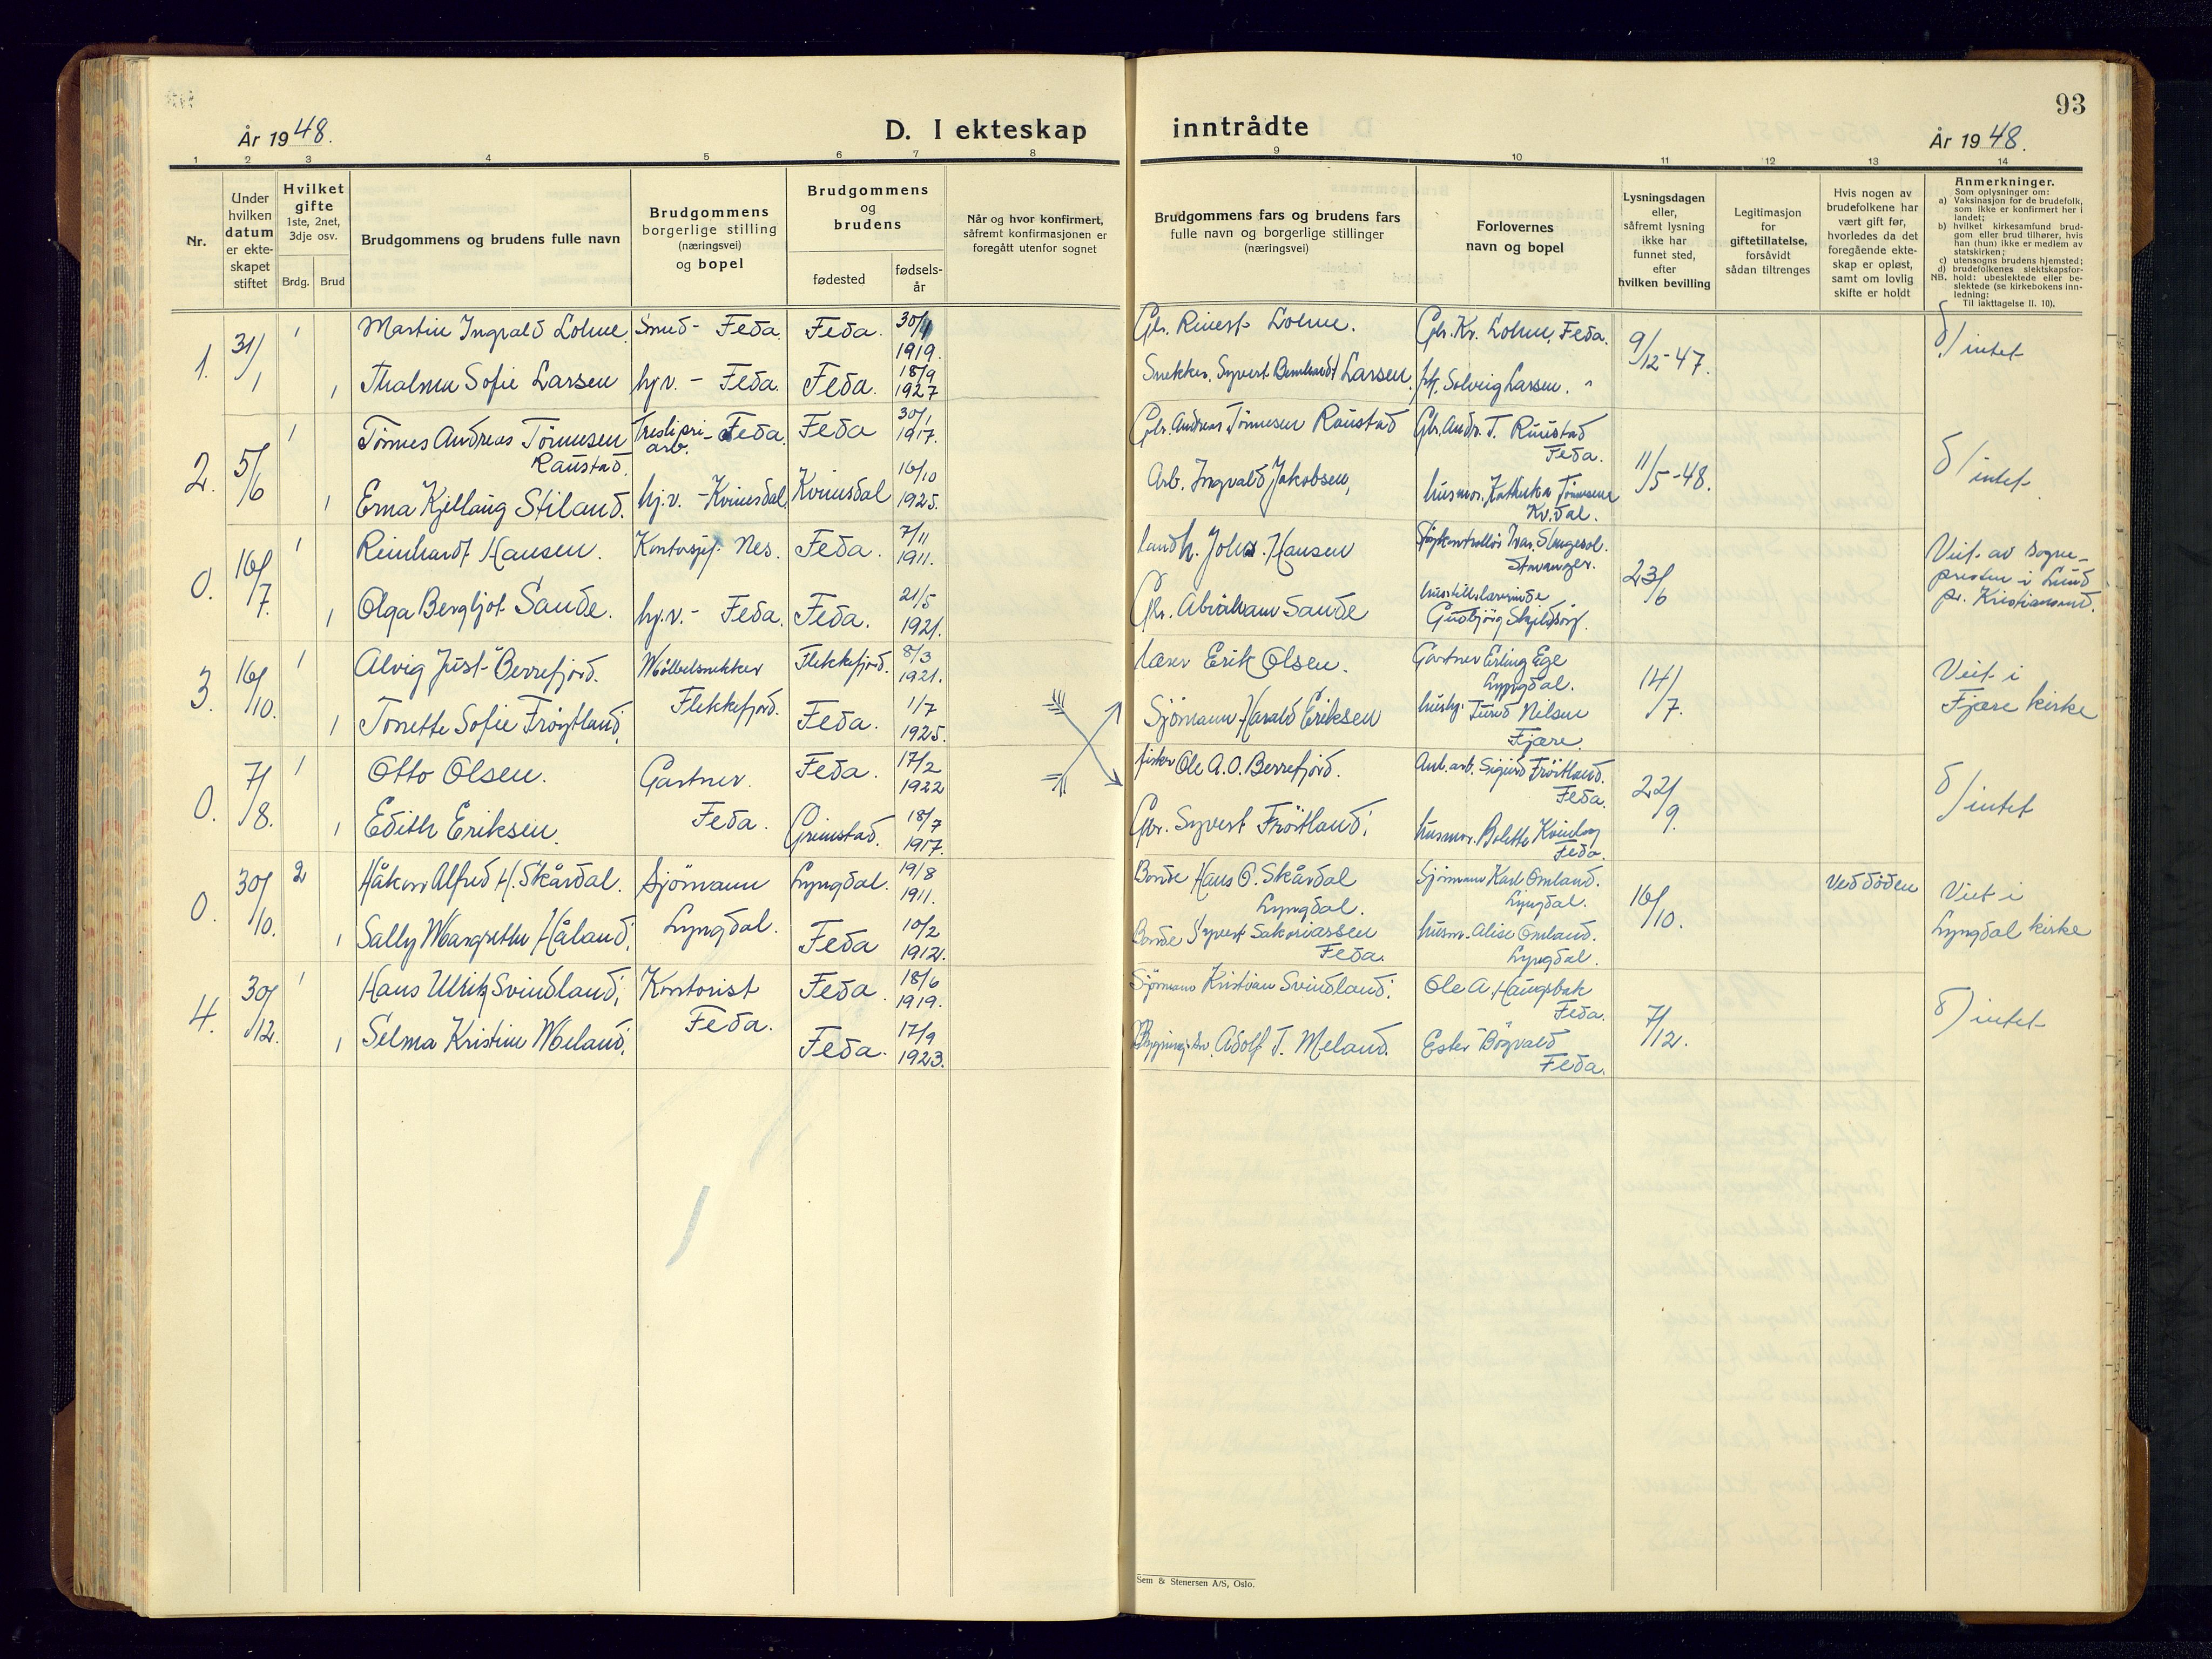 93
År 1948.
D. I ekteskap inntrådte
År 1948.
1 2 3 4 5 6 7 8 9 10 11 12 13 14
Nr.
Under hvilken datum er ekte-skapet stiftet
Hvilket gifte
1ste, 2net, 3dje osv.
Brdg. Brud
Brudgommens og brudens fulle navn
Brudgommens borgerlige stilling (næringsvei) og bopel
Brudgommens og brudens
fødested
fødsels-år
Når og hvor konfirmert, såfremt konfirmasjonen er foregått utenfor sognet
Brudgommens fars og brudens fars fulle navn og borgerlige stillinger (næringsvei)
Forlovernes navn og bopel
Lysningsdagen eller, såfremt lysning ikke har funnet sted, efter hvilken bevilling
Legitimasjon for giftetillatelse, forsåvidt sådan tiltrenges
Hvis nogen av brudefolkene har vært gift før, hvorledes da det foregående ekte-skap er opløst, samt om lovlig skifte er holdt
Anmerkninger.
Som oplysninger om:
a) Vaksinasjon for de brudefolk, som ikke er konfirmert her i landet;
b) hvilket kirkesamfund brud-gom eller brud tilhører, hvis han (hun) ikke er medlem av statskirken;
c) utensogns brudens hjemsted;
d) brudefolkenes slektskapsfor-hold: ubeslektede eller be-slektede (se kirkebokens inn-ledning:
NB. Til iakttagelse II. 10).
1. 31/1 1 Martin Ingvald Lohne Smed - Feda Feda. 30/4 1919. Gbr. Rinert Lohne. Gbr. Kr. Lohne, Feda. 9/12-47. d/intet
1 Thalma Sofie Larsen hj.v. - Feda. Feda. 18/9 1927 Snekker. Syvert Bernhardt Larsen. frk. Solveig Larsen. "
2. 5/6 1 Tönnes Andreas Tönnesen Raustad. Tresliperi-arb. Feda. Feda 30/1 1917. Gbr. Andreas Tönnesen Raustad Gbr. Andr. T. Raustad Feda. 11/5-48. d/intet
1 Erna Kjellaug Stiland. hj.v. - Kvinesdal Kvinesdal 16/10 1925. Arb. Ingvald Jakobsen, husmor. Tönnesen Kv.dal.
0. 16/7. 1 Reinhardt Hansen. Kontorsjef. Nes. Feda. 7/11 1911. landh. Johs. Hansen Ivar Stavanger. 23/6 Viet av sogne-presten i Lund pr. Kristiansand.
1 Olga Bergljot Sande. hj.v. - Feda. Feda. 21/5 1921. Gbr. Abraham Sande Gudbjörg
3. 16/10. 1 Alvig Just Berrefjord. Möbelsnekker Flekkefjord. Flekkefjord. 8/3 1921. lærer Erik Olsen. Gartner Erling Ege Lyngdal. 14/7. Viet i Fjære kirke
1 Tonette Sofie Fröytland. Feda. 1/7 1925. Sjömann Harald Eriksen hushj. Turid Nilsen Fjære.
0. 7/8. 1 Otto Olsen. Gartner. Feda. Feda. 17/2 1922 fisker Ole A. O. Berrefjord. Anl.arb. Sigurd Fröitland. Feda. 22/9. d/intet
1 Edith Eriksen. Grimstad. 18/7 1917. Gbr. Syvert Fröitland. husmor. Bolette Kvinlog Feda.
0. 30/10. 2 Håkon Alfred H. Skårdal. Sjömann Lyngdal. Lyngdal. 19/8 1911. Bonde Hans O. Skårdal Lyngdal. Sjömann Karl Omland. Lyngdal. 16/10. Ved döden Viet i Lyngdal kirke
1 Sally Margrethe Håland. Feda 10/2 1912. Bonde Syvert Sakariassen Feda. husm. Alise Omland. Lyngdal.
4. 30/12. 1 Hans Ulrik Svindland. Kontorist Feda. Feda. 18/6 1919. Sjömann Kristian Svindland. Ole A. Haugsbak Feda. 7/12. d) intet
1 Selma Kristine Meland. Feda. 17/9 1923. Adolf T. Meland. Ester Bögvald Feda.
Sem & Stenersen A/S, Oslo.